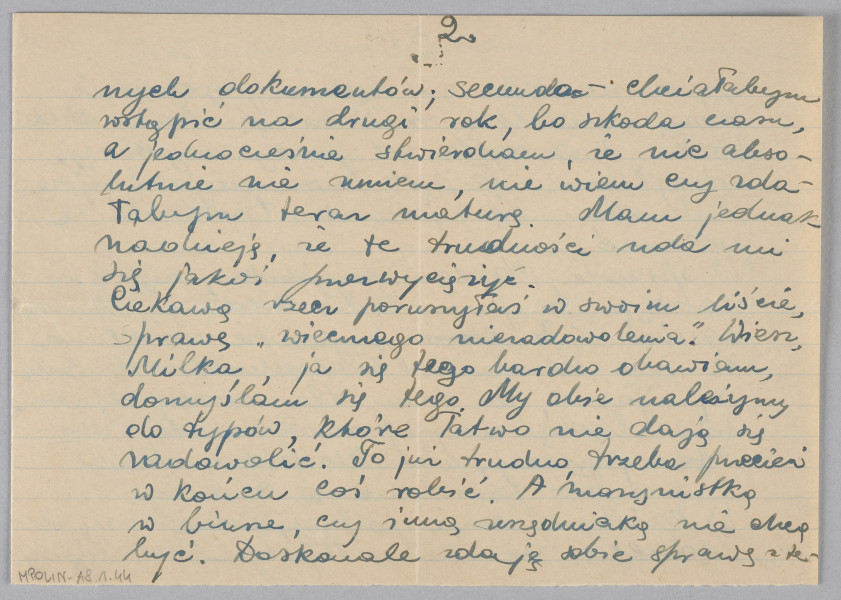 2.
nych dokumentów; secundo – chciałabym
wstąpić na drugi rok, bo szkoda czasu,
a jednocześnie stwierdzam, że nic abso-
lutnie nie umiem, nie wiem czy zda-
łabym teraz maturę. Mam jednak
nadzieję, że te trudności uda mi
się jakoś przezwyciężyć.
Ciekawą rzecz poruszyłaś w swoim liście,
sprawę „wiecznego niezadowolenia”. Wiesz,
Milka, ja się tego bardzo obawiam,
domyślam się tego. My obie należymy
do typów, które łatwo nie dają się
zadowolić. To już trudno, trzeba przecież
w końcu coś robić. A maszynistką
w biurze, czy inną urzędniczką nie chcę
być. Doskonale zdaję sobie sprawę z te-
MPOLIN-A8.1.44